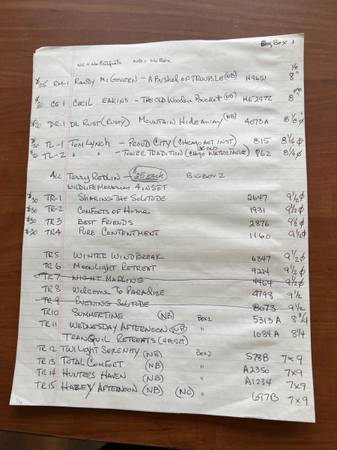 Big Box 1
NC = No Certificate   NB = No Box
RM-1 Randy McGovern - A Bushel of Trouble (NB) H9651 8"
CE-1 Cecil Eakins - The Old Wooden Bucket (NB) HE2972 8"
DR-1 DL Rust (Rusty) Mountain Hideaway (NB) 4073A 8½ Ø
TL-1 Tom Lynch - Proud City (Chicago Art Inst) 815 8¼ Ø
TL-2 " " - Tradition 862 8¼ Ø
All Terry Redlin - $25 each Big Box 2
Wildlife Memories 4 in Set
$30 TR-1 Sharing the Solitude 2647 9½ Ø
$30 TR-2 Comforts of Home 1931 9½ Ø
$30 TR3 Best Friends 2876 9½ Ø
$30 TR4 Pure Contentment 1160 9½ Ø
TR5 Winter Windbreak 6347 9½ Ø
TR6 Moonlight Retreat 9224 9½ Ø
TR-7 Night Mapling 4464 9½ Ø
TR8 Welcome to Paradise 4798 9½
TR-9 Evening Solitude 8073 9½
TR10 Summertime (NB) Box2 5313A 8¾
TR11 Wednesday Afternoon (NB) " 1684A 8¼
Tranquil Retreats
TR12 Twilight Serenity (NB) Box2 578B 7×9
TR13 Total Comfort (NB) " A2350 7×9
TR14 Hunters Haven (NB) " A1234 7×9
TR15 Hazey Afternoon (NB) (NC) " 697B 7×9